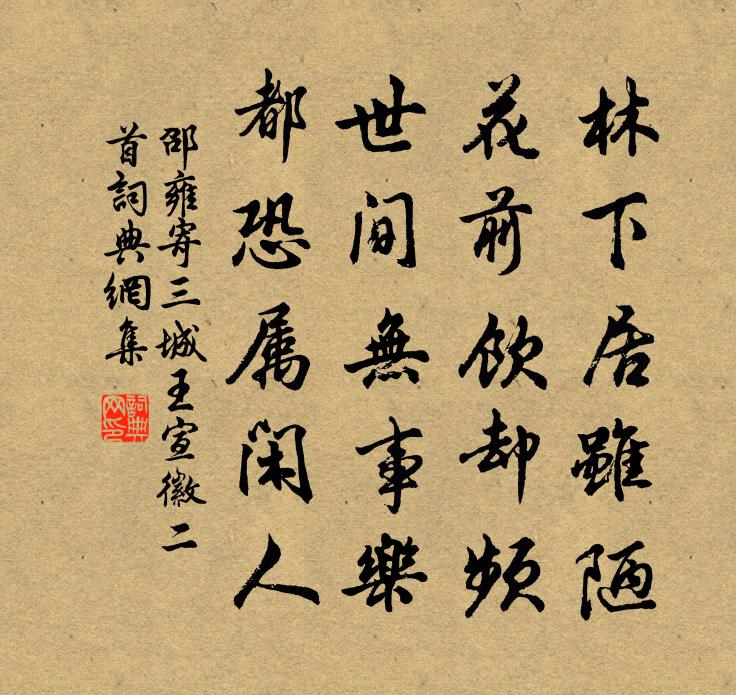 林下居雖陋
花前飲却頻
世間無事樂
都恐属閑人
邵雍寄三城王宣徽二
首詞典網集
詞典
网印